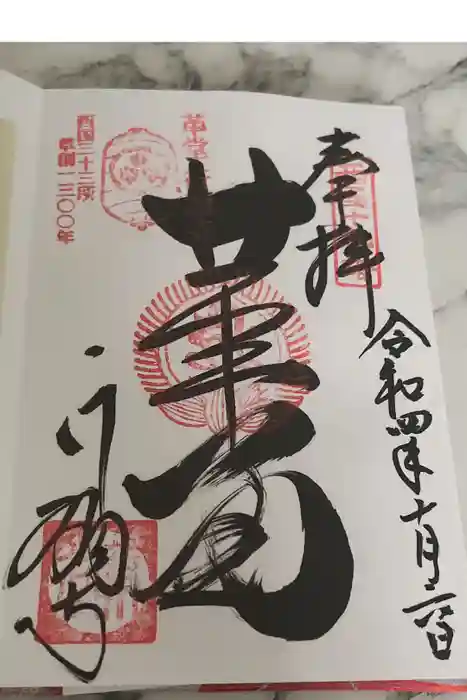 奉拝
令和四年十月二日
革堂
革堂
行願寺
西国三十三所
草創一三〇〇年